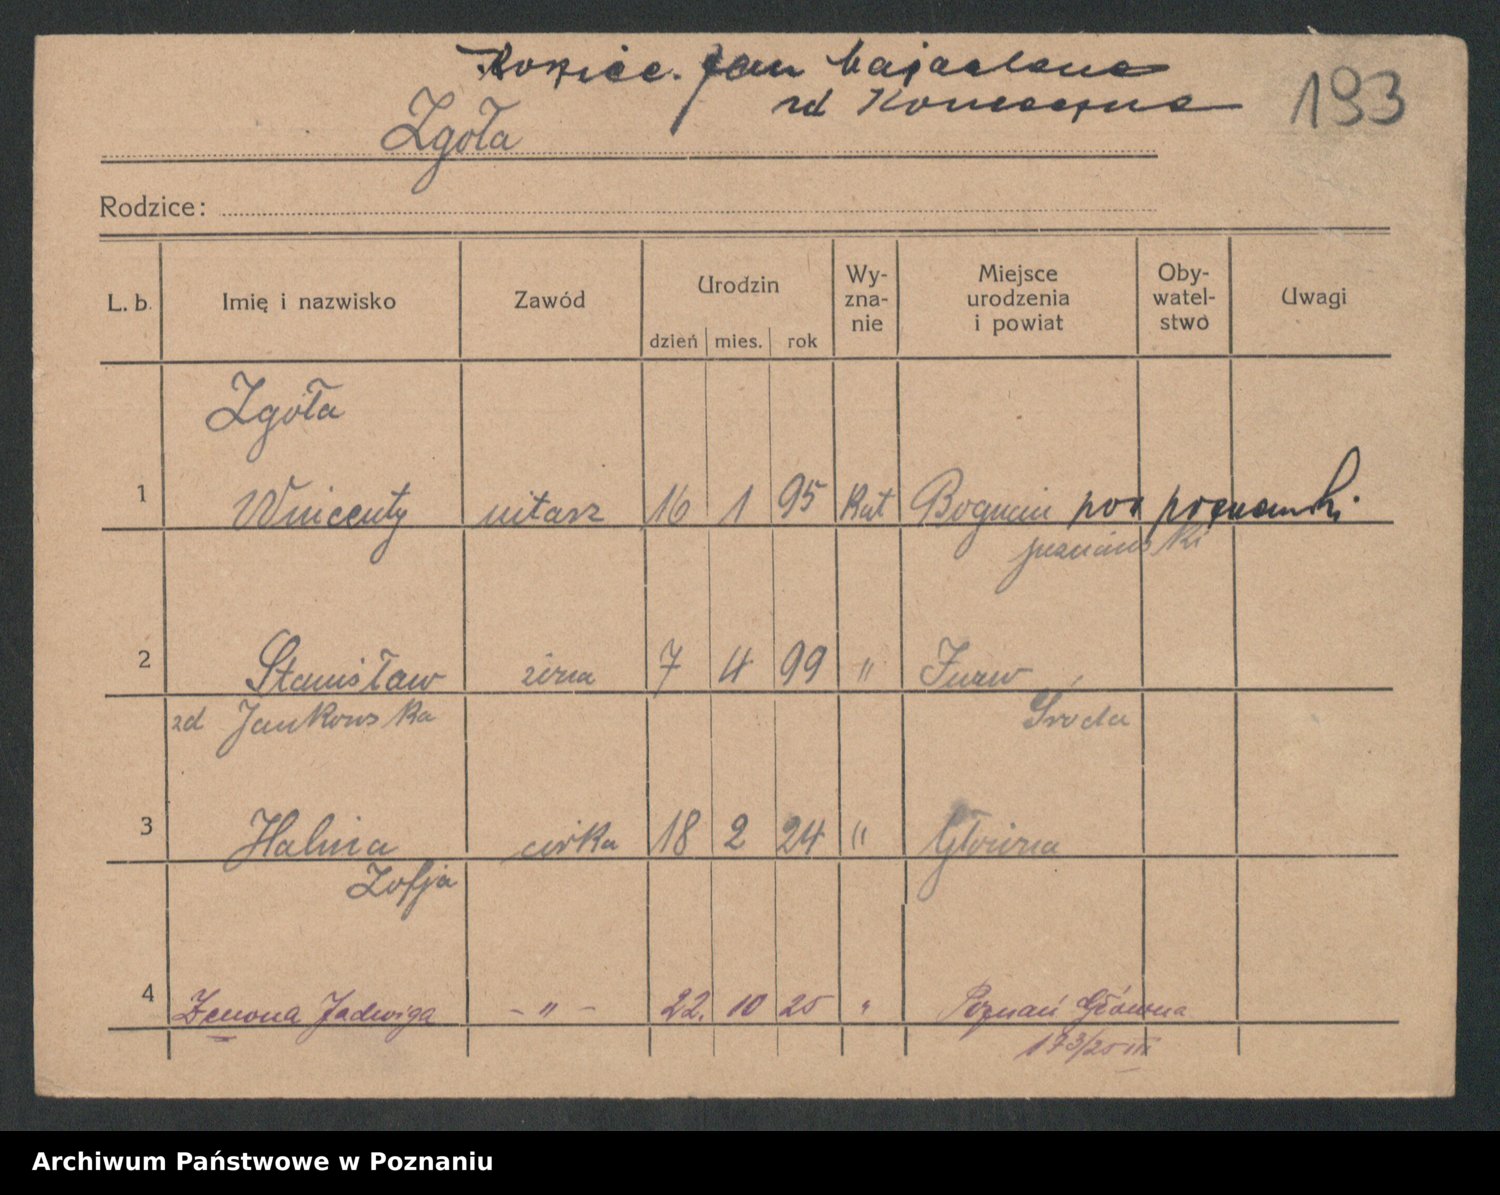 Rodzice. Jan Magdalena
zd Konieczna
193
Zgoła
Rodzice:
L. b. Imię i nazwisko Zawód Urodzin dzień mies. rok Wy-zna-nie Miejsce urodzenia i powiat Oby-watel-stwo Uwagi
Zgoła
1 Wincenty 16 1 95 Kat pow poznański
poznański
2 Stanisław żona 7 4 99 "
zd Jankowska Środa
3 Halina córka 18 2 24 " Główna
Zofja
4 Zenona Jadwiga - " - 22. 10 25 " Poznań Główna
173/25 III
Archiwum Państwowe w Poznaniu